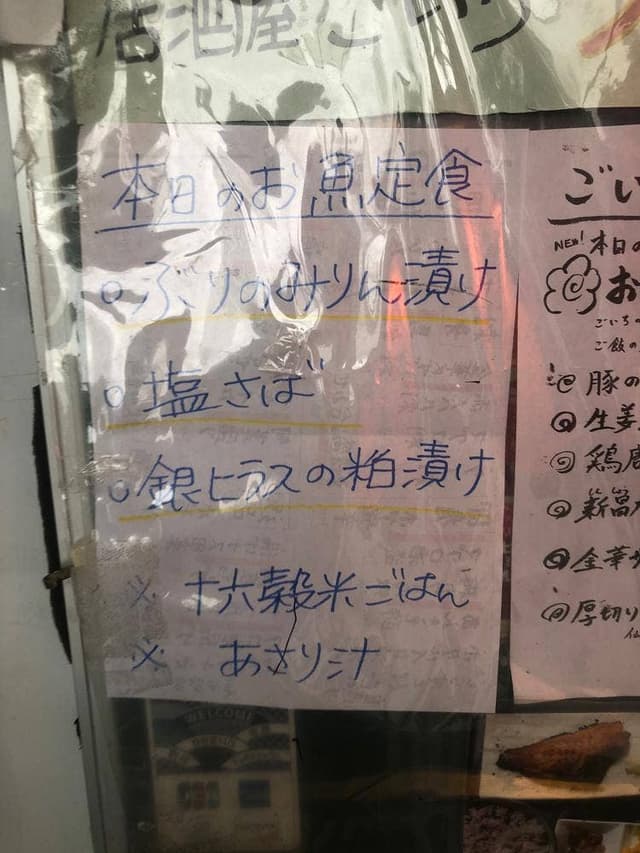 居酒屋ご
本日のお魚定食
○ぶりのみりん漬け
○塩さば
○銀ヒラスの粕漬け
※ 十六穀米ごはん
※ あさり汁
ごい
NEW! 本日の
お
ごいちの
ご飯の
豚の
生姜
鶏
新
金華
厚切り
WELCOME